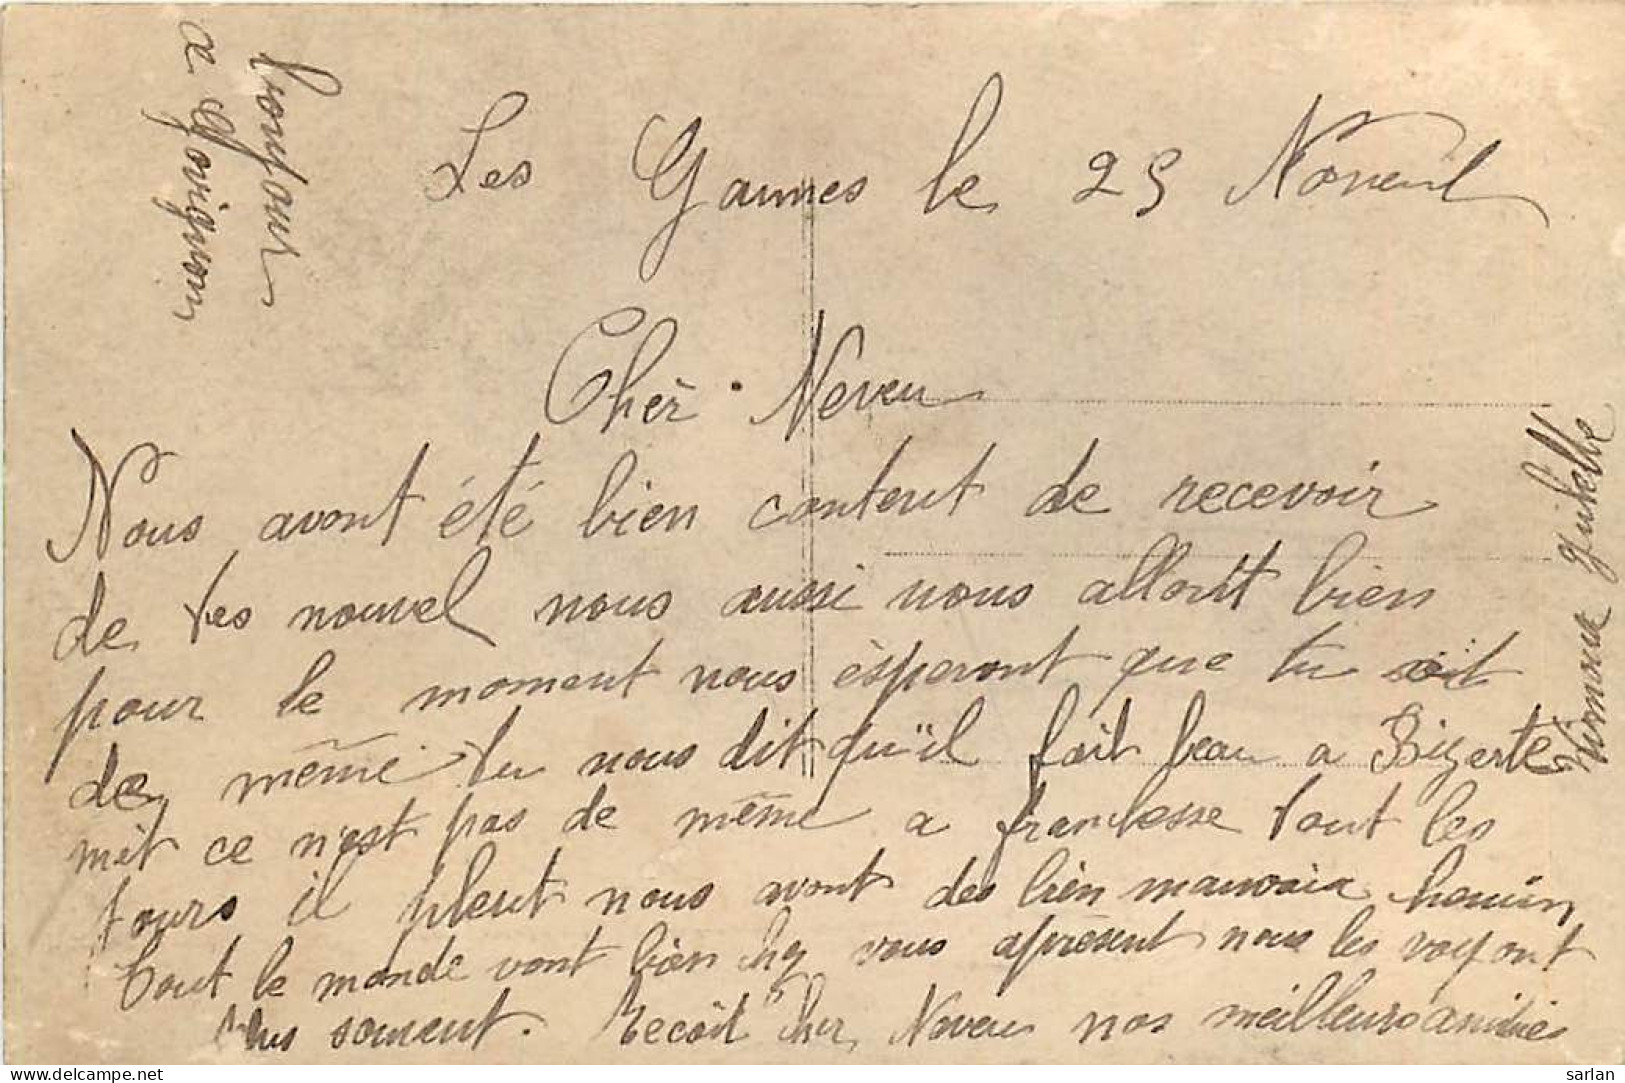 Les Gaunes le 25 Novenl
Chèr Neveu
Nous avont été bien contenut de recevoir
de tes nouvel nous aussi nous allont bien
pour le moment nous èsperont que tu soit
de même tu nous dit qu'il fait beau a Bizerte
mèt ce n'est pas de même a frambesse tout les
jours il pleut nous avont des bièn mauvaix
tout le monde vont bièn chez vous apresent nous les voyont
plus souvent. recoit cher Neveu nos meilleurs amitiés
bonjour
a
Simone
delcampe.net
sarlan